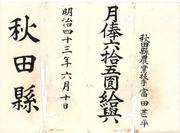 秋田縣農業技手富田甚平
月俸六拾五圓給與
明治四十三年六月十日
秋田縣